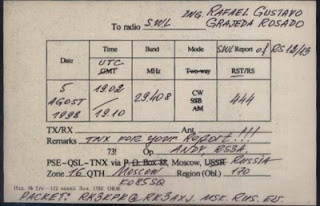 ING. RAFAEL GUSTAVO
To radio SWL GRAJEDA ROSADO
Date Time Band Mode SWL Report of RS 12/13
UTC
GMT MHz Two-way RST/RS
5 AGOST 1998 19.02 / 19.10 29408 CW SSB AM 444
TX/RX Ant.
Remarks TNX FOR YOUR REPORT!!!
73! Op ANDY RS3A
PSE-QSL-TNX via P. O. Box 88, Moscow, USSR RUSSIA
Zone 16 QTH Moscow Region (Obl.) 170
KO85SQ
PACKET: RK3KPK@RK3AXJ. MSK. RUS. EU.